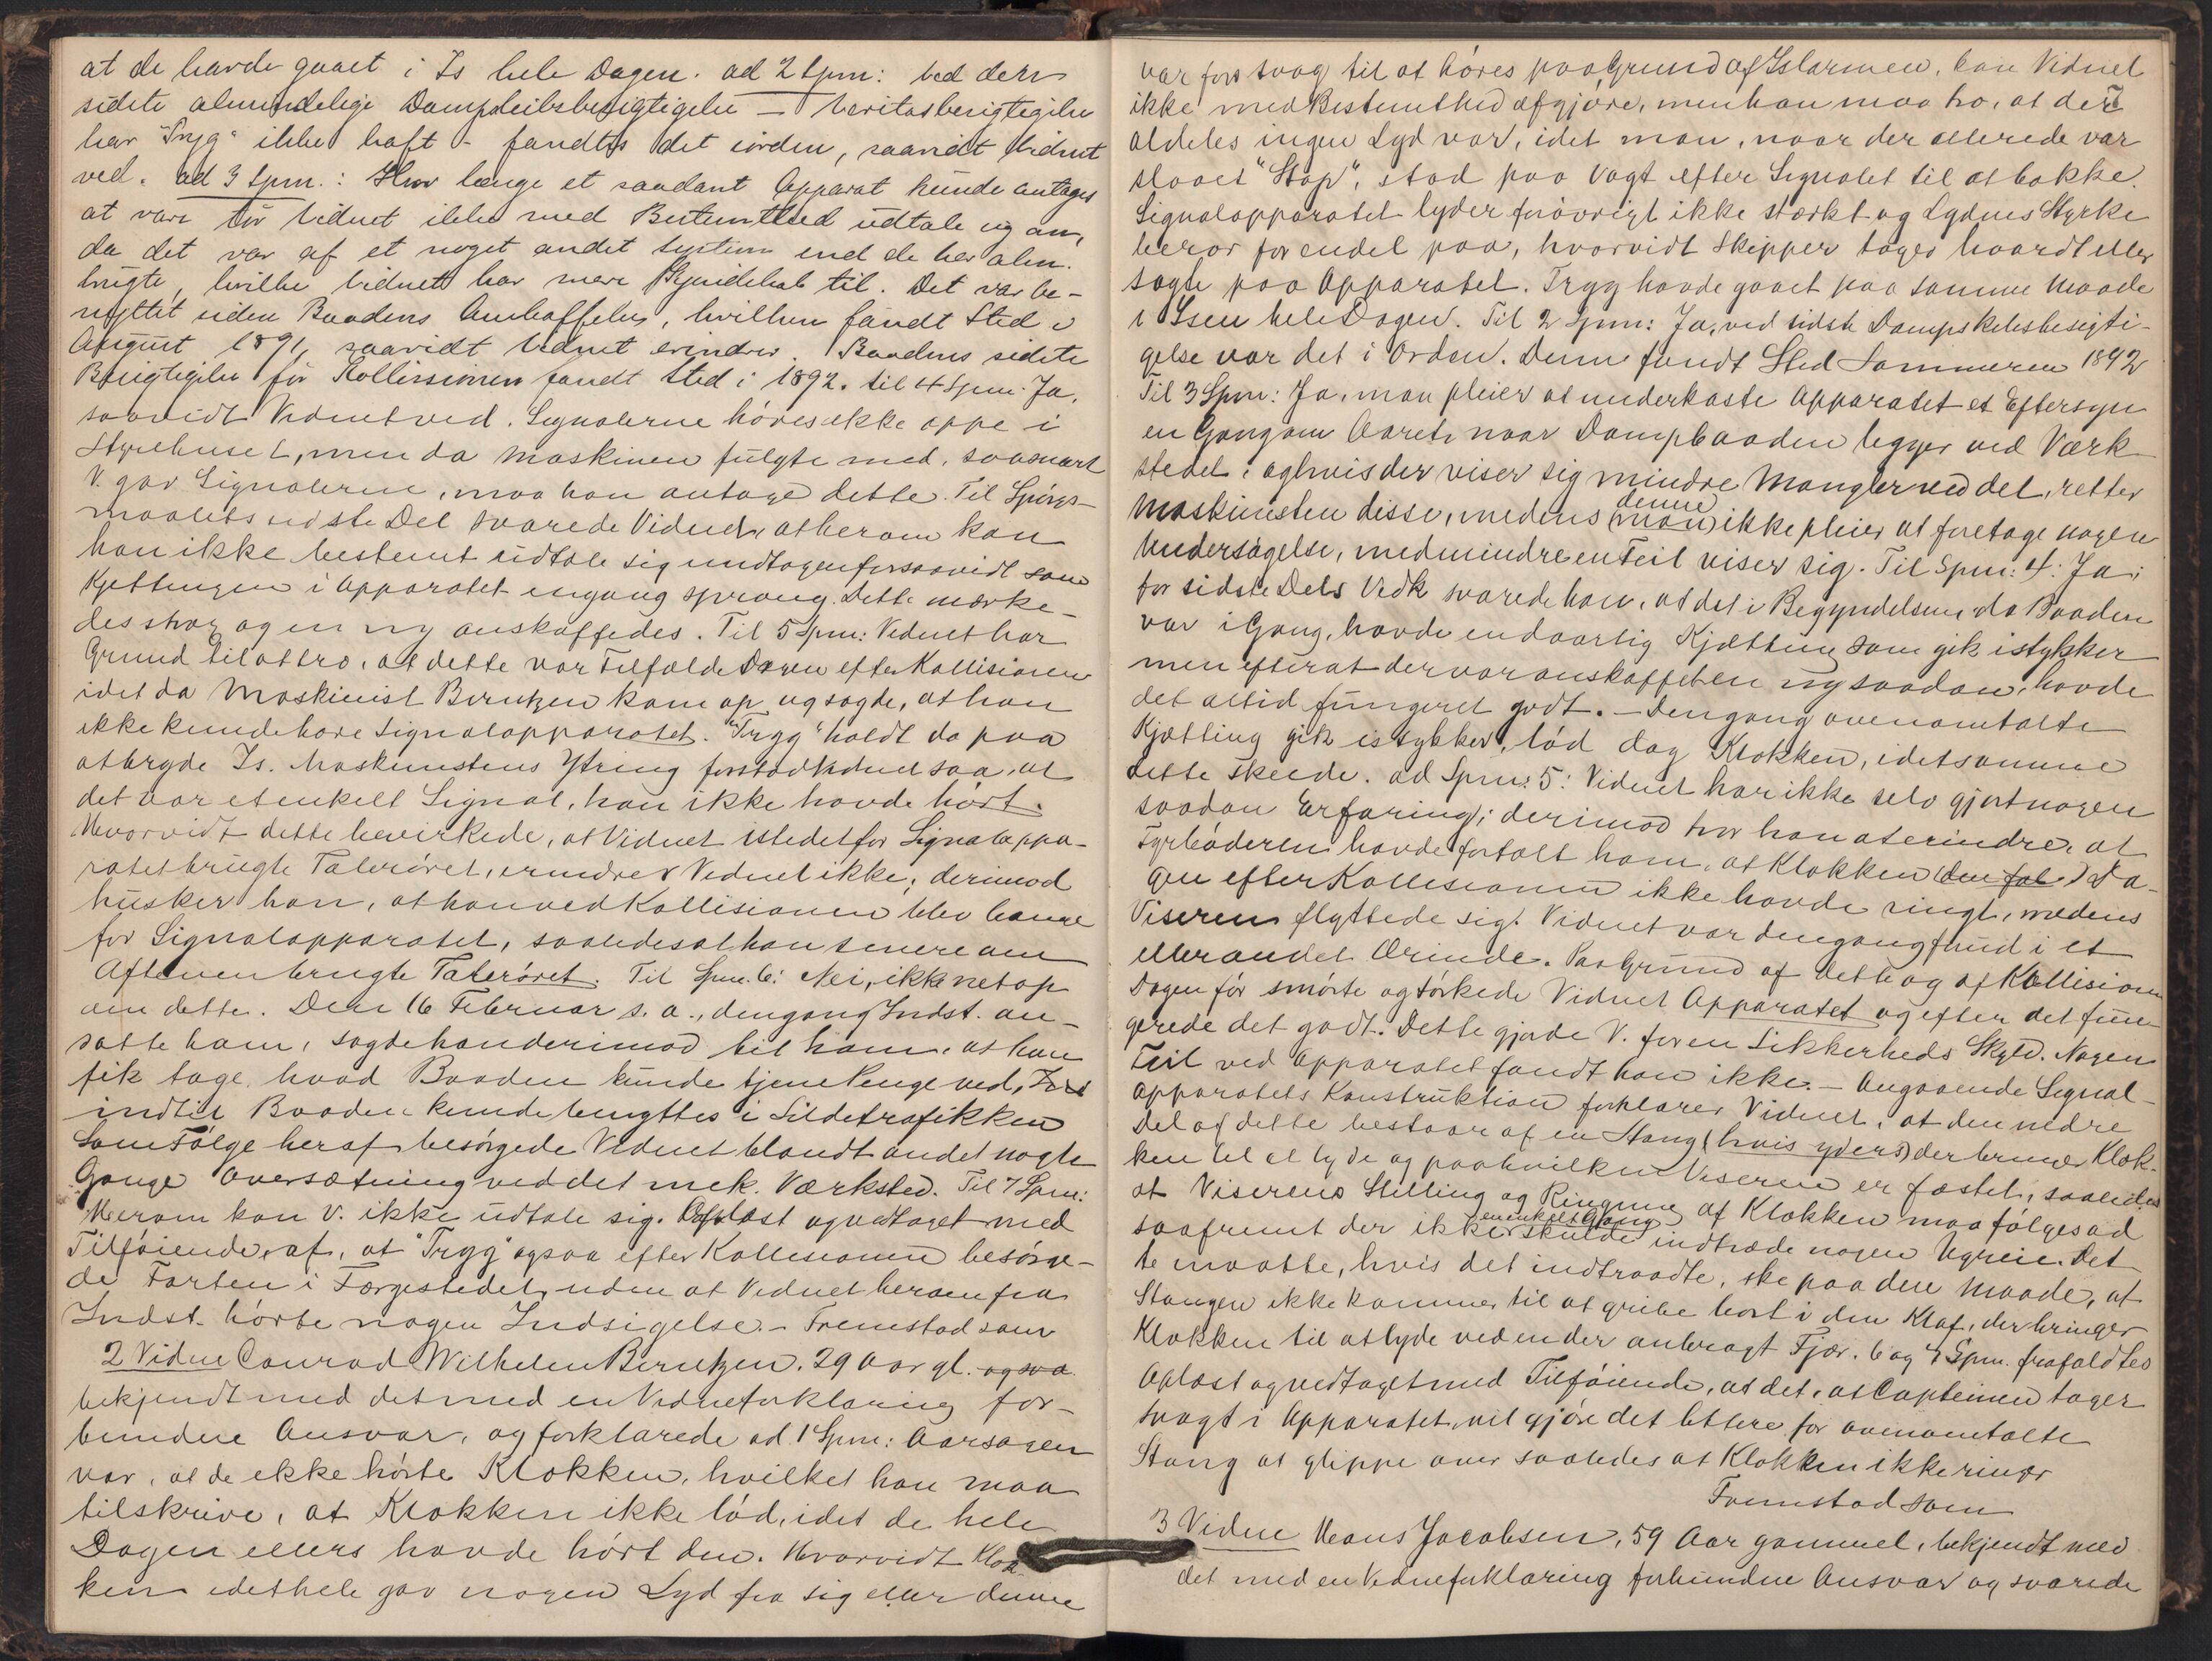 at de havde gaaet i Is hele Dagen. ad 2 Spm: Ved den
sidste almindelige Dampskibsbesigtigelse – Veritasbesigtigelse
har "Tryg" ikke haft – fandtes det iorden, saavidt Vidnet
ved. ad 3 Spm.: Hvor længe et saadant Apparat kunde antages
at vare tør Vidnet ikke med Bestemthed udtale sig om,
da det var af et noget andet System end de her alm.
brugte, hvilke Vidnet har mere Kjendskab til. Det var be-
nyttet siden Baadens Anskaffelse, hvilken fandt Sted i
August 1891, saavidt Vidnet erindrer. Baadens sidste
Besigtigelse før Kollisionen fandt Sted i 1892. Til 4 Spm: Ja,
saavidt Vidnet ved. Signalerne høres ikke oppe i
Styrehuset, men da Maskinen fulgte med, saasnart
V. gav Signalerne, maa han antage dette. Til Spørgs-
maalets sidste Del svarede Vidnet, at herom kan
han ikke bestemt udtale sig undtagen forsaavidt som
Kjettingen i Apparatet engang sprang. Dette mærke-
des strax og en ny anskaffedes. Til 5 Spm: Vidnet har
Grund til at tro, at dette var Tilfælde Dagen efter Kollisionen
idet da Maskinist Berntzen kom op og sagde, at han
ikke kunde høre Signalapparatet. "Tryg" holdt da paa
at bryde Is. Maskinistens Ytring forstod Vidnet saa, at
det var et enkelt Signal, han ikke havde hørt.
Hvorvidt dette bevirkede, at Vidnet istedetfor Signalappa-
ratet brugte Talerøret, erindrer Vidnet ikke; derimod
husker han, at han ved Kollisionen blev bange
for Signalapparatet, saaledes at han senere om
Aftenen brugte Talerøret. Til Spm. 6: Nei, ikke netop
om dette. Den 16 Februar s. a., dengang Indst. an-
satte ham, sagde han derimod til ham, at han
fik tage, hvad Baaden kunde tjene Penge ved,
indtil Baaden kunde benyttes i Sildetrafikken
Som Følge heraf besørgede Vidnet blandt andet nogle
Gange Oversætning ved det mek. Værksted. Til 7 Spm:
Herom kan V. ikke udtale sig. Oplæst og vedtaget med
Tilføiende af, at "Tryg" ogsaa efter Kollisionen besørge-
de Farten i Færgestedet, uden at Vidnet herom fra
Indst. hørte nogen Indsigelse. – Fremstod som
2 Vidne Conrad Wilhelm Berntzen. 29 Aar gl. ogsaa
bekjendt med det med en Vidneforklaring for-
bundne Ansvar, og forklarede ad 1 Spm: Aarsagen
var, at de ikke hørte Klokken, hvilket han maa
tilskrive, at Klokken ikke lød, idet de hele
Dagen ellers havde hørt den. Hvorvidt Klok-
ken idethele gav nogen Lyd fra sig eller denne
var for svag til at høres paa Grund af Islarmen, kan Vidnet
ikke med Bestemthed afgjøre, men han maa tro, at der
aldeles ingen Lyd var, idet man, naar der allerede var
slaaet "Stop", stod paa Vagt efter Signalet til at bakke.
Signalapparatet lyder forøvrigt ikke stærkt og Lydens Styrke
beror for endel paa, hvorvidt Skipper tager haardt eller
sagte paa Apparatet. Tryg havde gaaet paa samme Maade
i Isen hele Dagen. Til 2 Spm: Ja, ved sidste Dampskibsbesigti-
gelse var det i Orden. Denne fandt Sted Sommeren 1892
Til 3 Spm: Ja, man pleier at underkaste Apparatet et Eftersyn
en Gang om Aaret, naar Dampbaaden ligger ved Værk-
stedet; og hvis der viser sig mindre Mangler ved det, retter
Maskinisten disse, medens (man) denne ikke pleier at foretage nogen
Undersøgelse, medmindre en Feil viser sig. Til Spm: 4: Ja;
for sidste Dels Vedk svarede han, at det i Begyndelsen, da Baaden
var i Gang, havde en daarlig Kjætting som gik istykker
men efterat der var anskaffet en ny saadan, havde
det altid fungeret godt. – Dengang ovenomtalte
Kjætting gik istykker, lød dog Klokken, idetsamme
dette skeede. ad Spm: 5: Vidnet har ikke selv gjort nogen
saadan Erfaring; derimod tror han at erindre, at
Fyrbøderen havde fortalt ham, at Klokken (den fal) Da-
gen efter Kollisionen ikke havde ringt, medens
Viseren flyttede sig. Vidnet var dengang fraud i et
eller andet Ærinde. Paa Grund af dette og af Kollisionen
Dagen før smørte og tørkede Vidnet Apparatet og efter det fun-
gerede det godt. Dette gjorde V. for en Sikkerheds Skyld. Nogen
Feil ved Apparatet fandt han ikke. – Angaaende Signal-
apparatets Konstruktion forklarer Vidnet, at den nedre
Del af dette bestaar af en Stang (hvis yders) der bringer Klok-
ken til at lyde og paa hvilken Viseren er fæstet, saaledes
at Viserens Stilling og Ringning af Klokken maa følges ad
saafremt der ikke en enkelt Gang skulde indtræde nogen Ugreie. Det-
te maatte, hvis det indtraadte, ske paa den Maade, at
Stangen ikke kommer til at gribe bort i den Klaf, der bringer
Klokken til at lyde ved en der anbragt Fjær. 6 og 7 Spm. frafaldtes
Oplæst og vedtaget med Tilføiende, at det, at Capteinen tager
svagt i Apparatet, vil gjøre det lettere for ovenomtalte
Stang at glippe over saaledes at Klokken ikke ringer
Fremstod som
3 Vidne Hans Jacobsen, 59 Aar gammel, bekjendt med
det med en Vidneforklaring forbundne Ansvar og svarede